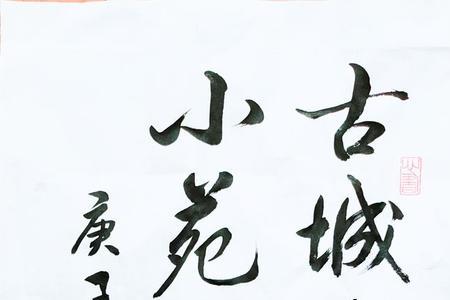 古城
小苑
庚子